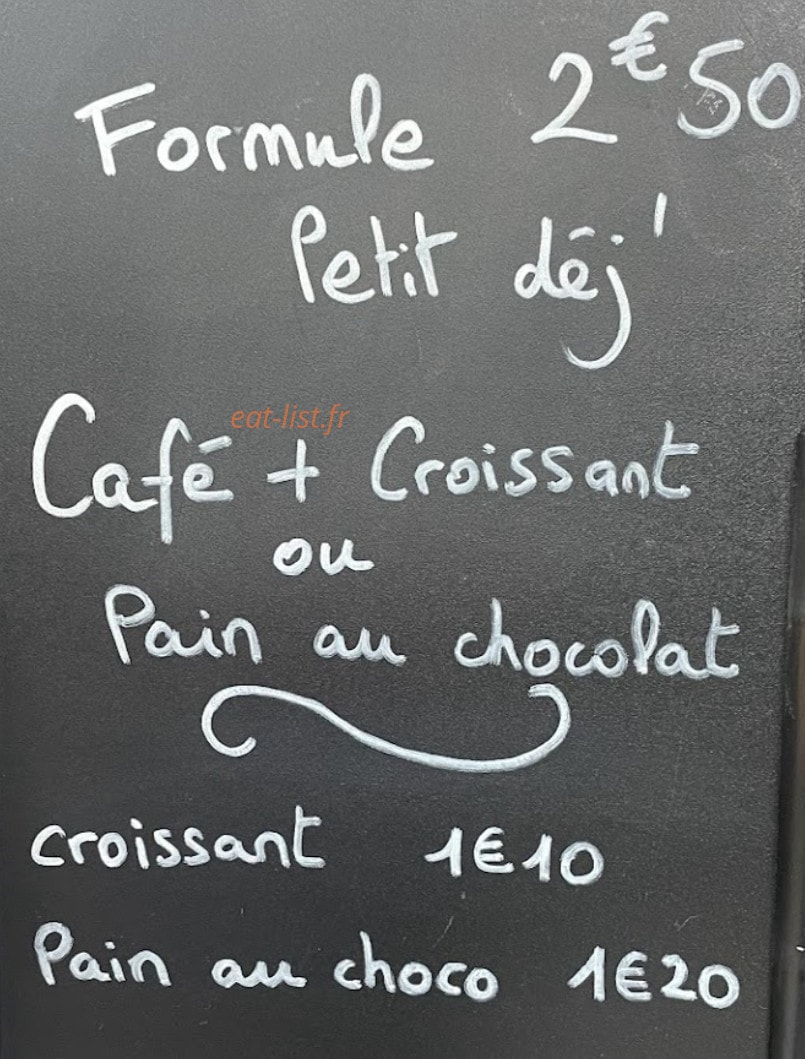 Formule 2€50
Petit déj'
eat-list.fr
Café + Croissant
ou
Pain au chocolat
croissant 1€10
Pain au choco 1€20